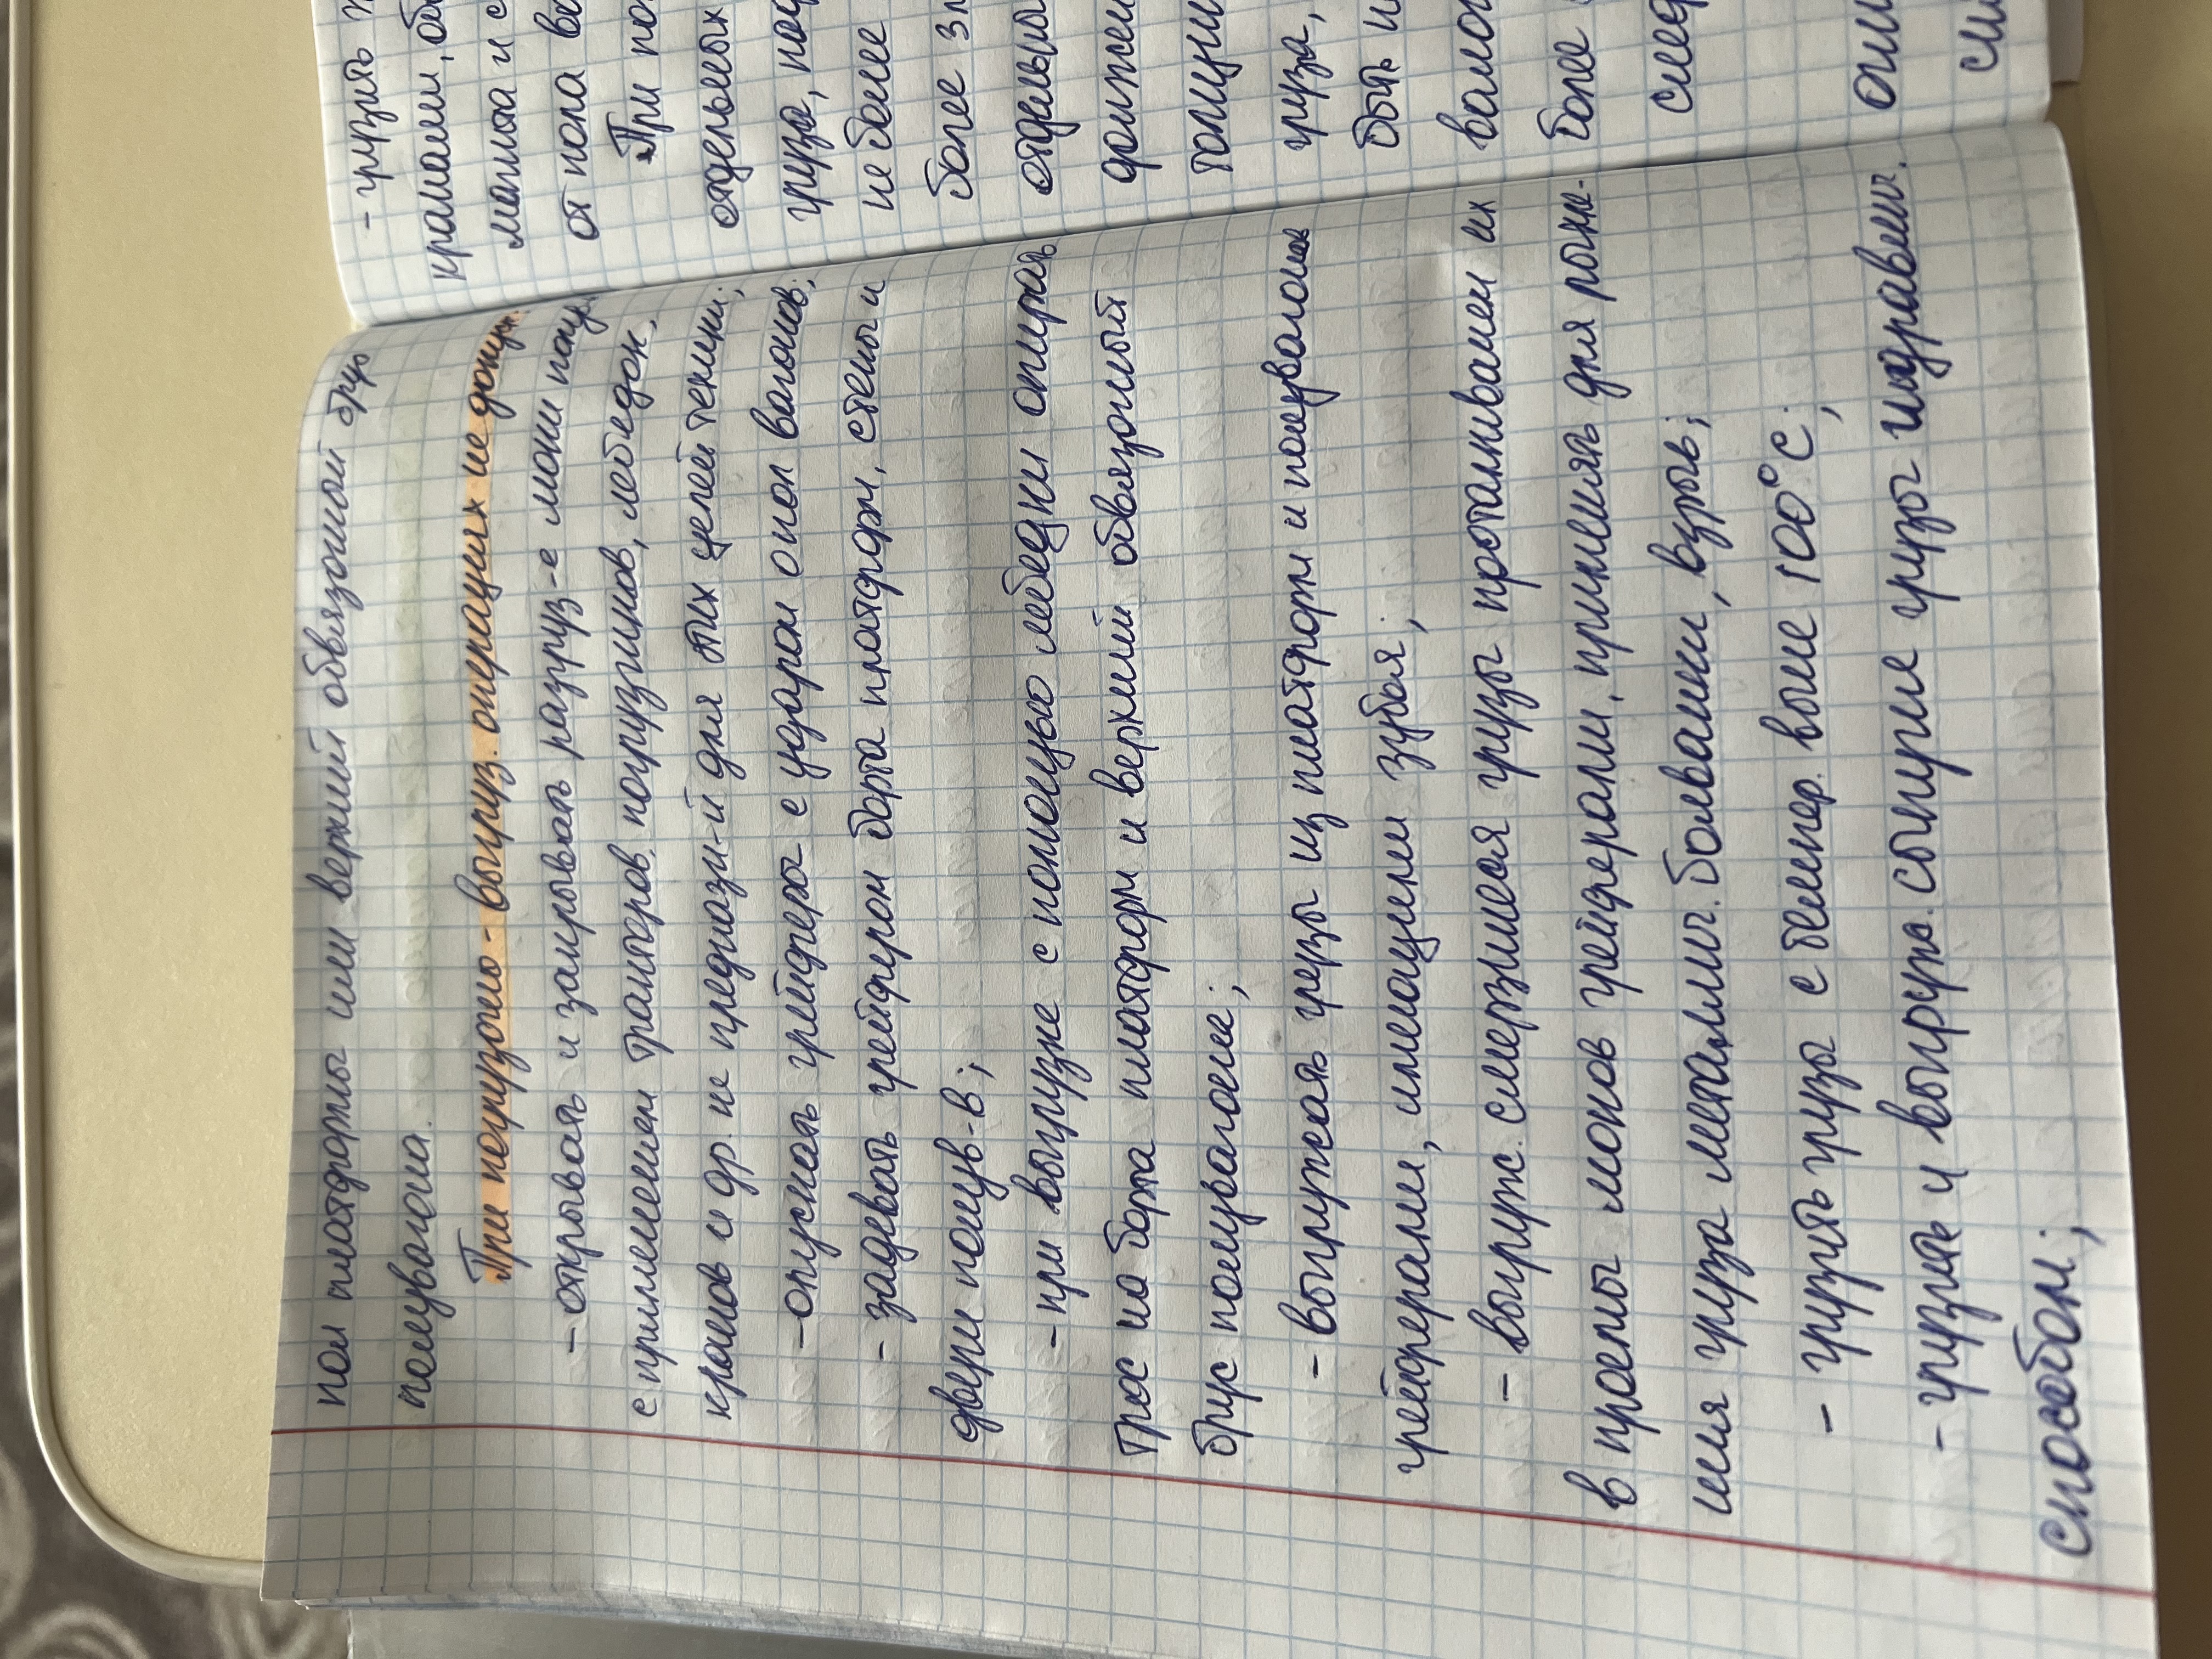 пол платформы или верхний обвязочной брус
полувагона.
При погрузочно-выгруз. операциях не допуск.
- открывать и закрывать разгруз-е люки полу
с применен. тракторов, погрузчиков, лебедок,
кранов и др. не предназн-й для этих целей техники;
- опускать грейферы с ударом о пол вагонов;
- задевать грейфером борта платформ, стены и
двери полув-в;
- при выгрузке с помощью лебедки опирать
трос на борта платформ и верхний обвязочный
брус полувагонее;
- выгружать грузы из платформ и полувагонов
грейферами, имеющими зубья;
- выгруж. смерзшиеся грузы проталкиванем их
в проемы люков грейферами, применять для рыхле-
ния груза металлич. болванки, взрыв;
- грузить грузы с темпер. выше 100°С;
- грузить и выгруж. сыпучие грузы гидравлич.
способом;
- грузить
кранами, об
от пола ва
При по
отдельных
груза, под
не более
более зн
отдельно
должен
груза,
быть и
более
след